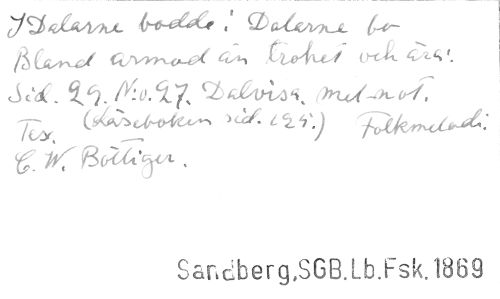 I Dalarne bodde i Dalarne bo
Bland armod än trohet och ära:
Sid. 29. N:o. 27. Dalvisa. med not.
Tex. (Läseboken sid. 129.) Folkmelodi.
C. W. Böttiger.
Sandberg, SGB. Lb. Fsk. 1869